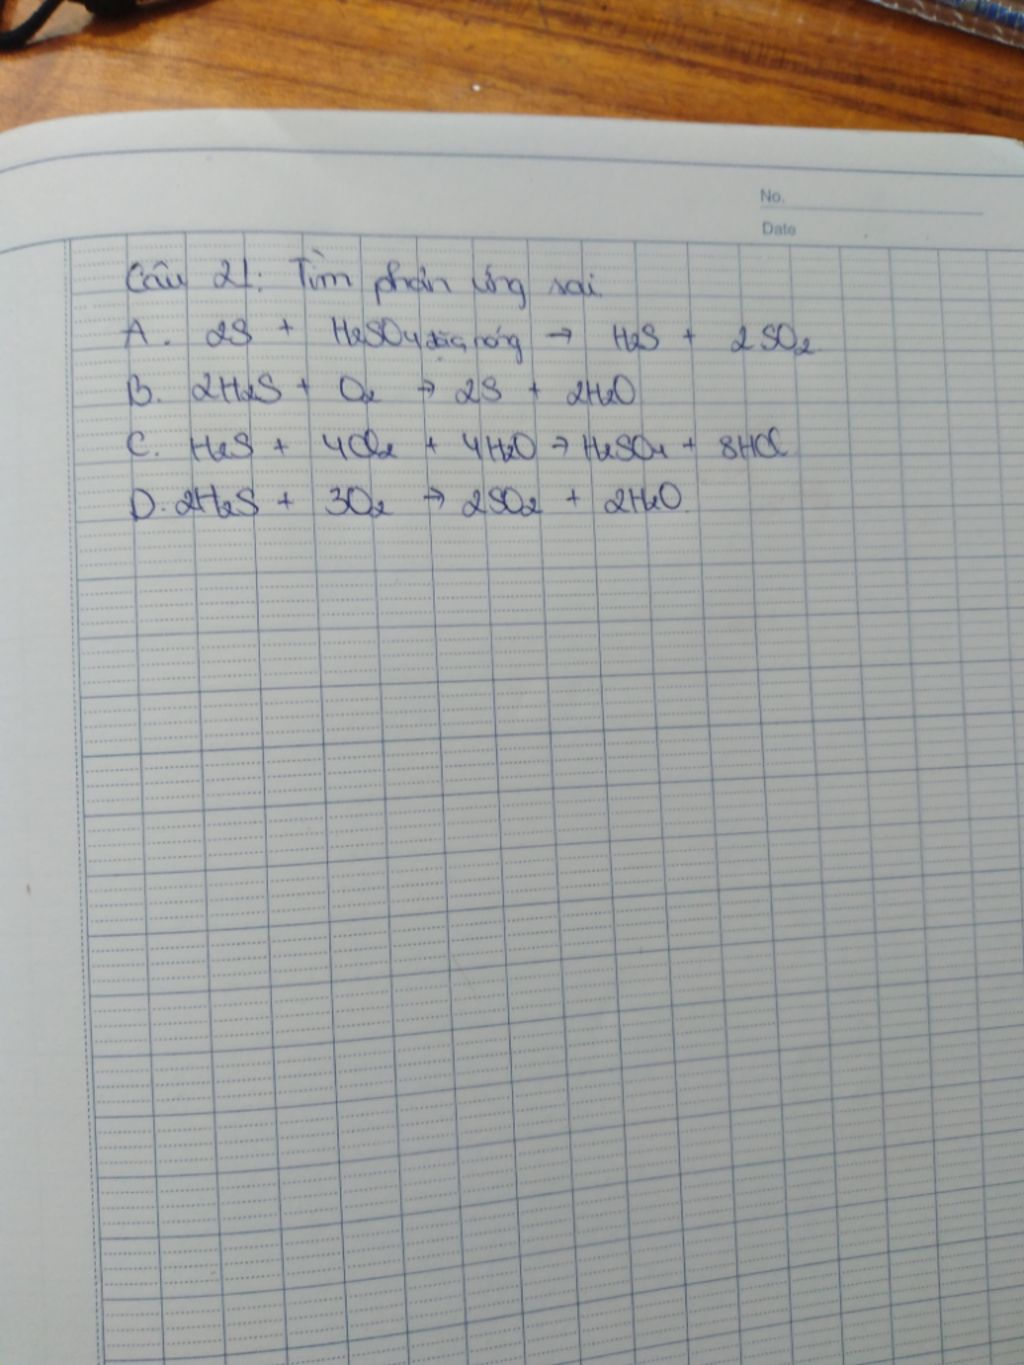 No.
Date
Câu 21: Tìm phản ứng sai
A. 2S + H2SO4 đặc, nóng → H2S + 2SO2
B. 2H2S + O2 → 2S + 2H2O
C. H2S + 4Cl2 + 4H2O → H2SO4 + 8HCl
D. 2H2S + 3O2 → 2SO2 + 2H2O.